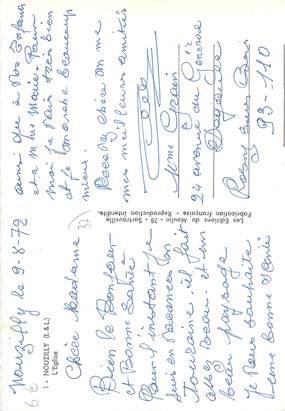 1 - NOUZILLY (I.&L.)
L'Eglise
Nouzilly le 9-8-72
Chère Madame
Bien le Bonjour
et Bonne Santé
Pour l'instant je
suis en vacances en
Touraine, il fait
assez beau et un
beau paysage
je vous souhaite
une bonne Santé
ainsi qu'à vos Enfants
et a Mme Marie
moi je vais très bien
et je marche beaucoup
mieux.
Recevez chère Mme
mes meilleurs amitiés
Les Editions du Moulin - 78 - Sartrouville
Fabrication française - Reproduction interdite.
37
Mme
24 avenue du Général
Rosny sous Bois
93-110